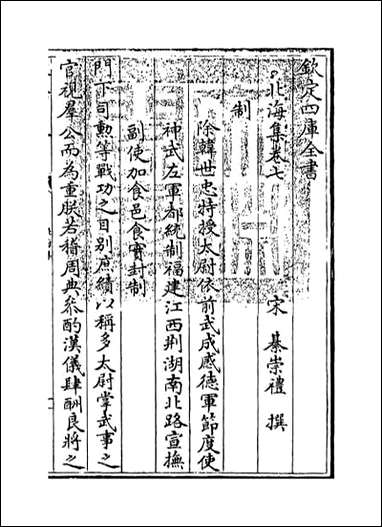 欽定四庫全書
北海集卷七
宋 綦崇禮 撰
制
除韓世忠特授太尉依前武成感徳軍節度使
神武左軍都統制福建江西荆湖南北路宣撫
副使加食邑食實封制
門下司勲等戰功之目别庶績以稱多太尉掌武事之
官視羣公而為重朕若稽周典叅酌漢儀肆酬良將之